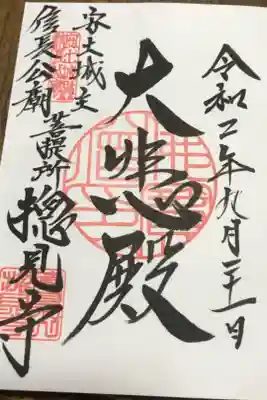 令和二年九月二十一日
大悲殿
安土城主
信長公廟 菩提所
摠見寺